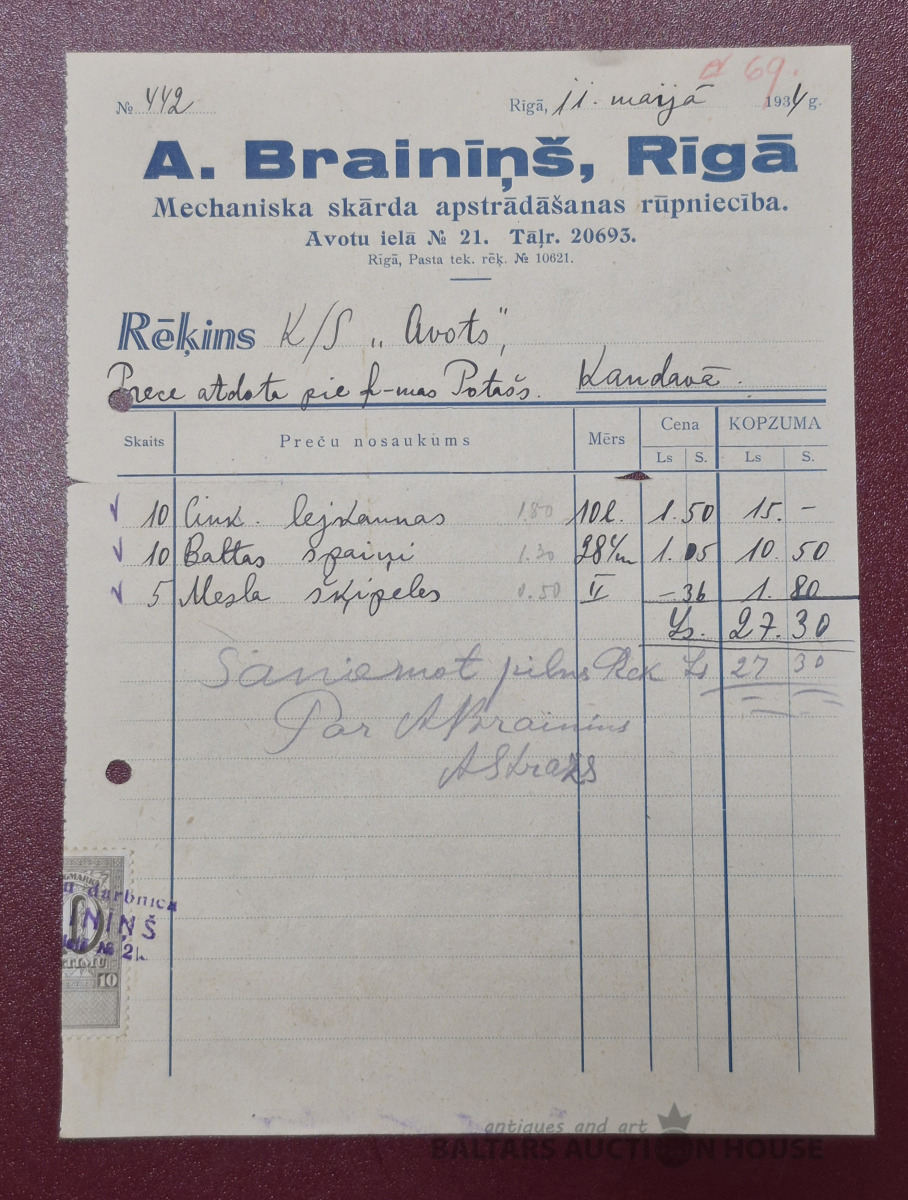 69.
№ 442 Rīgā, 11. maijā 1934 g.
A. Brainīņš, Rīgā
Mechaniska skārda apstrādāšanas rūpniecība.
Avotu ielā № 21. Tāļr. 20693.
Rīgā, Pasta tek. rēķ. № 10621.
Rēķins K/S „Avots",
Prece atdota pie f-mas Potašs. Kandavā.
Skaits Preču nosaukums Mērs Cena KOPZUMA
Ls S. Ls S.
10 Cink. lejkannas 1.80 10l. 1.50 15.-
10 Baltas spaiņi 1.30 28 1.05 10.50
5 Mesla šķipeles 0.50 II -36 1.80
Ls. 27.30
Saņemot pilns Rek Ls 27 30
Par ABrainins
darbnica
INIŅŠ
№ 21
10
antiques and art
BALTARS AUCTION HOUSE